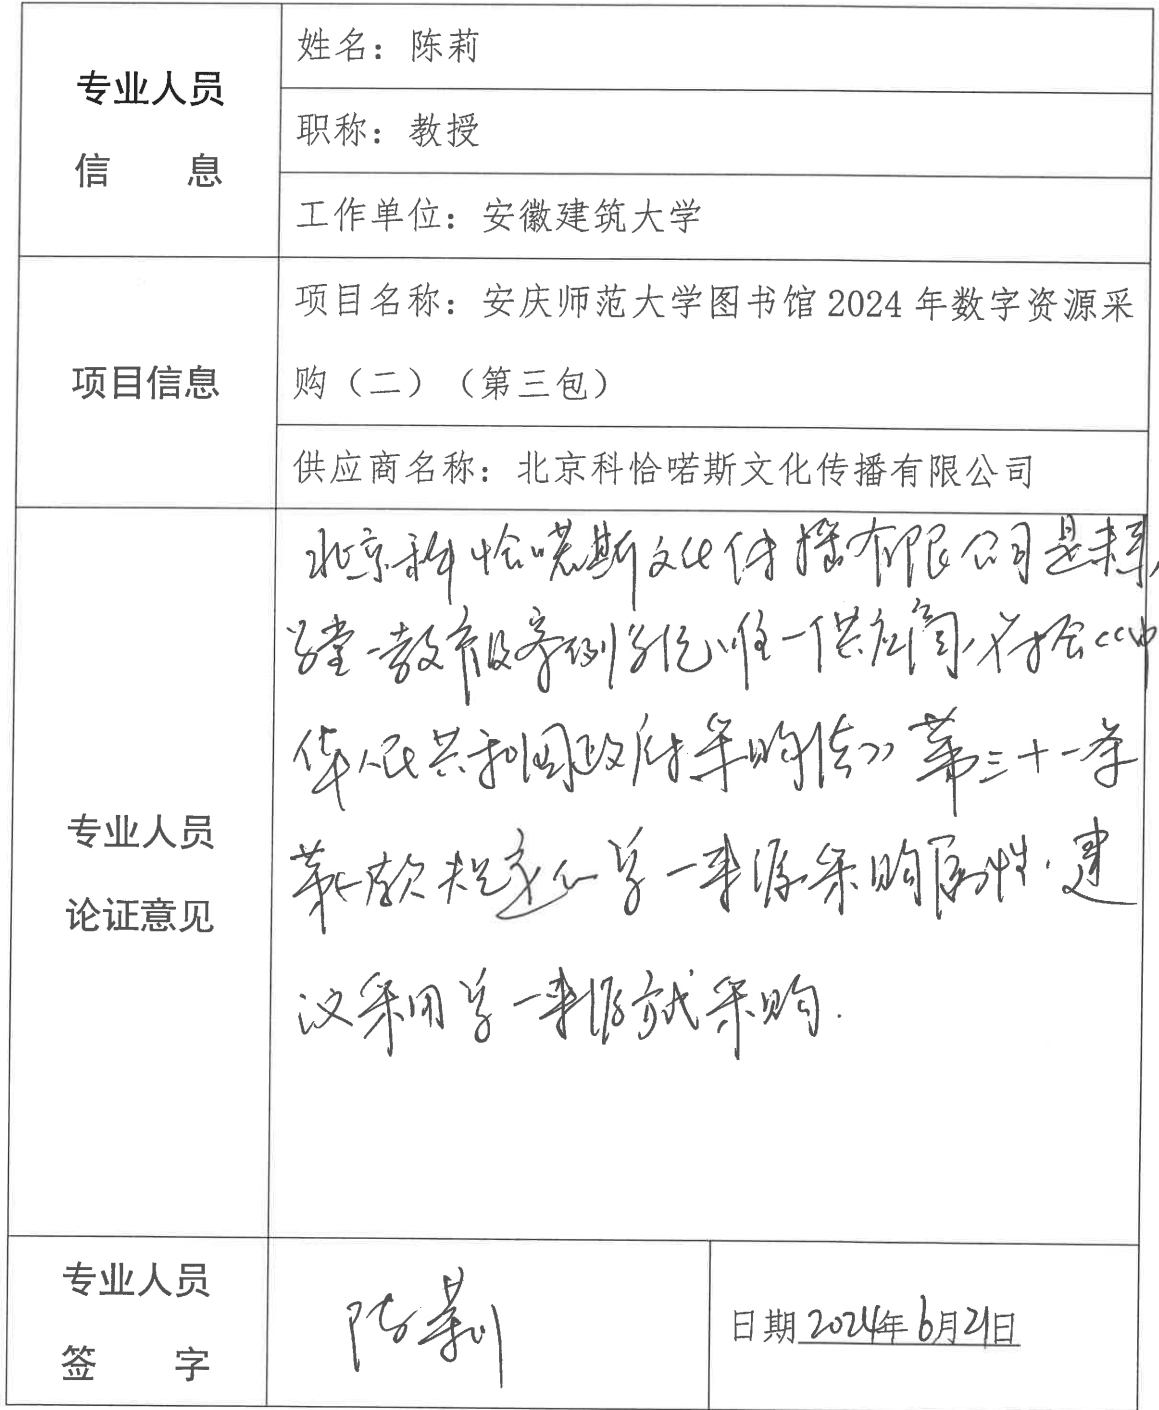 专业人员
信 息
姓名：陈莉
职称：教授
工作单位：安徽建筑大学
项目信息
项目名称：安庆师范大学图书馆 2024 年数字资源采
购（二）（第三包）
供应商名称：北京科恰喏斯文化传播有限公司
专业人员
论证意见
北京科恰喏斯文化传播有限公司是
学堂 教育 案例 唯一供应商，符合《中
华人民共和国政府采购法》第三十一条
第一款规定的单一来源采购属性。建
议采用单一来源方式采购.
专业人员
签 字
陈莉
日期 2024年6月21日